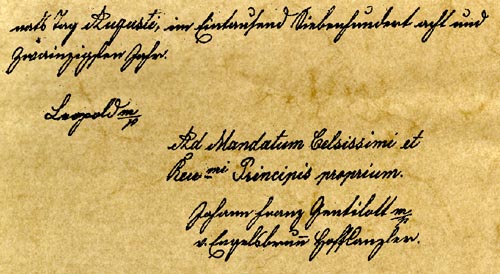 nats Tag Augusti, im Eintausend Siebenhundert acht und
Zwainzigsten Jahr.
Leopold m/p
Ad Mandatum Celsissimi et
Rev mi Principis proprium.
Johann Franz Gentilott m/p
v. Engelsbrun̄ Hofkanzler.